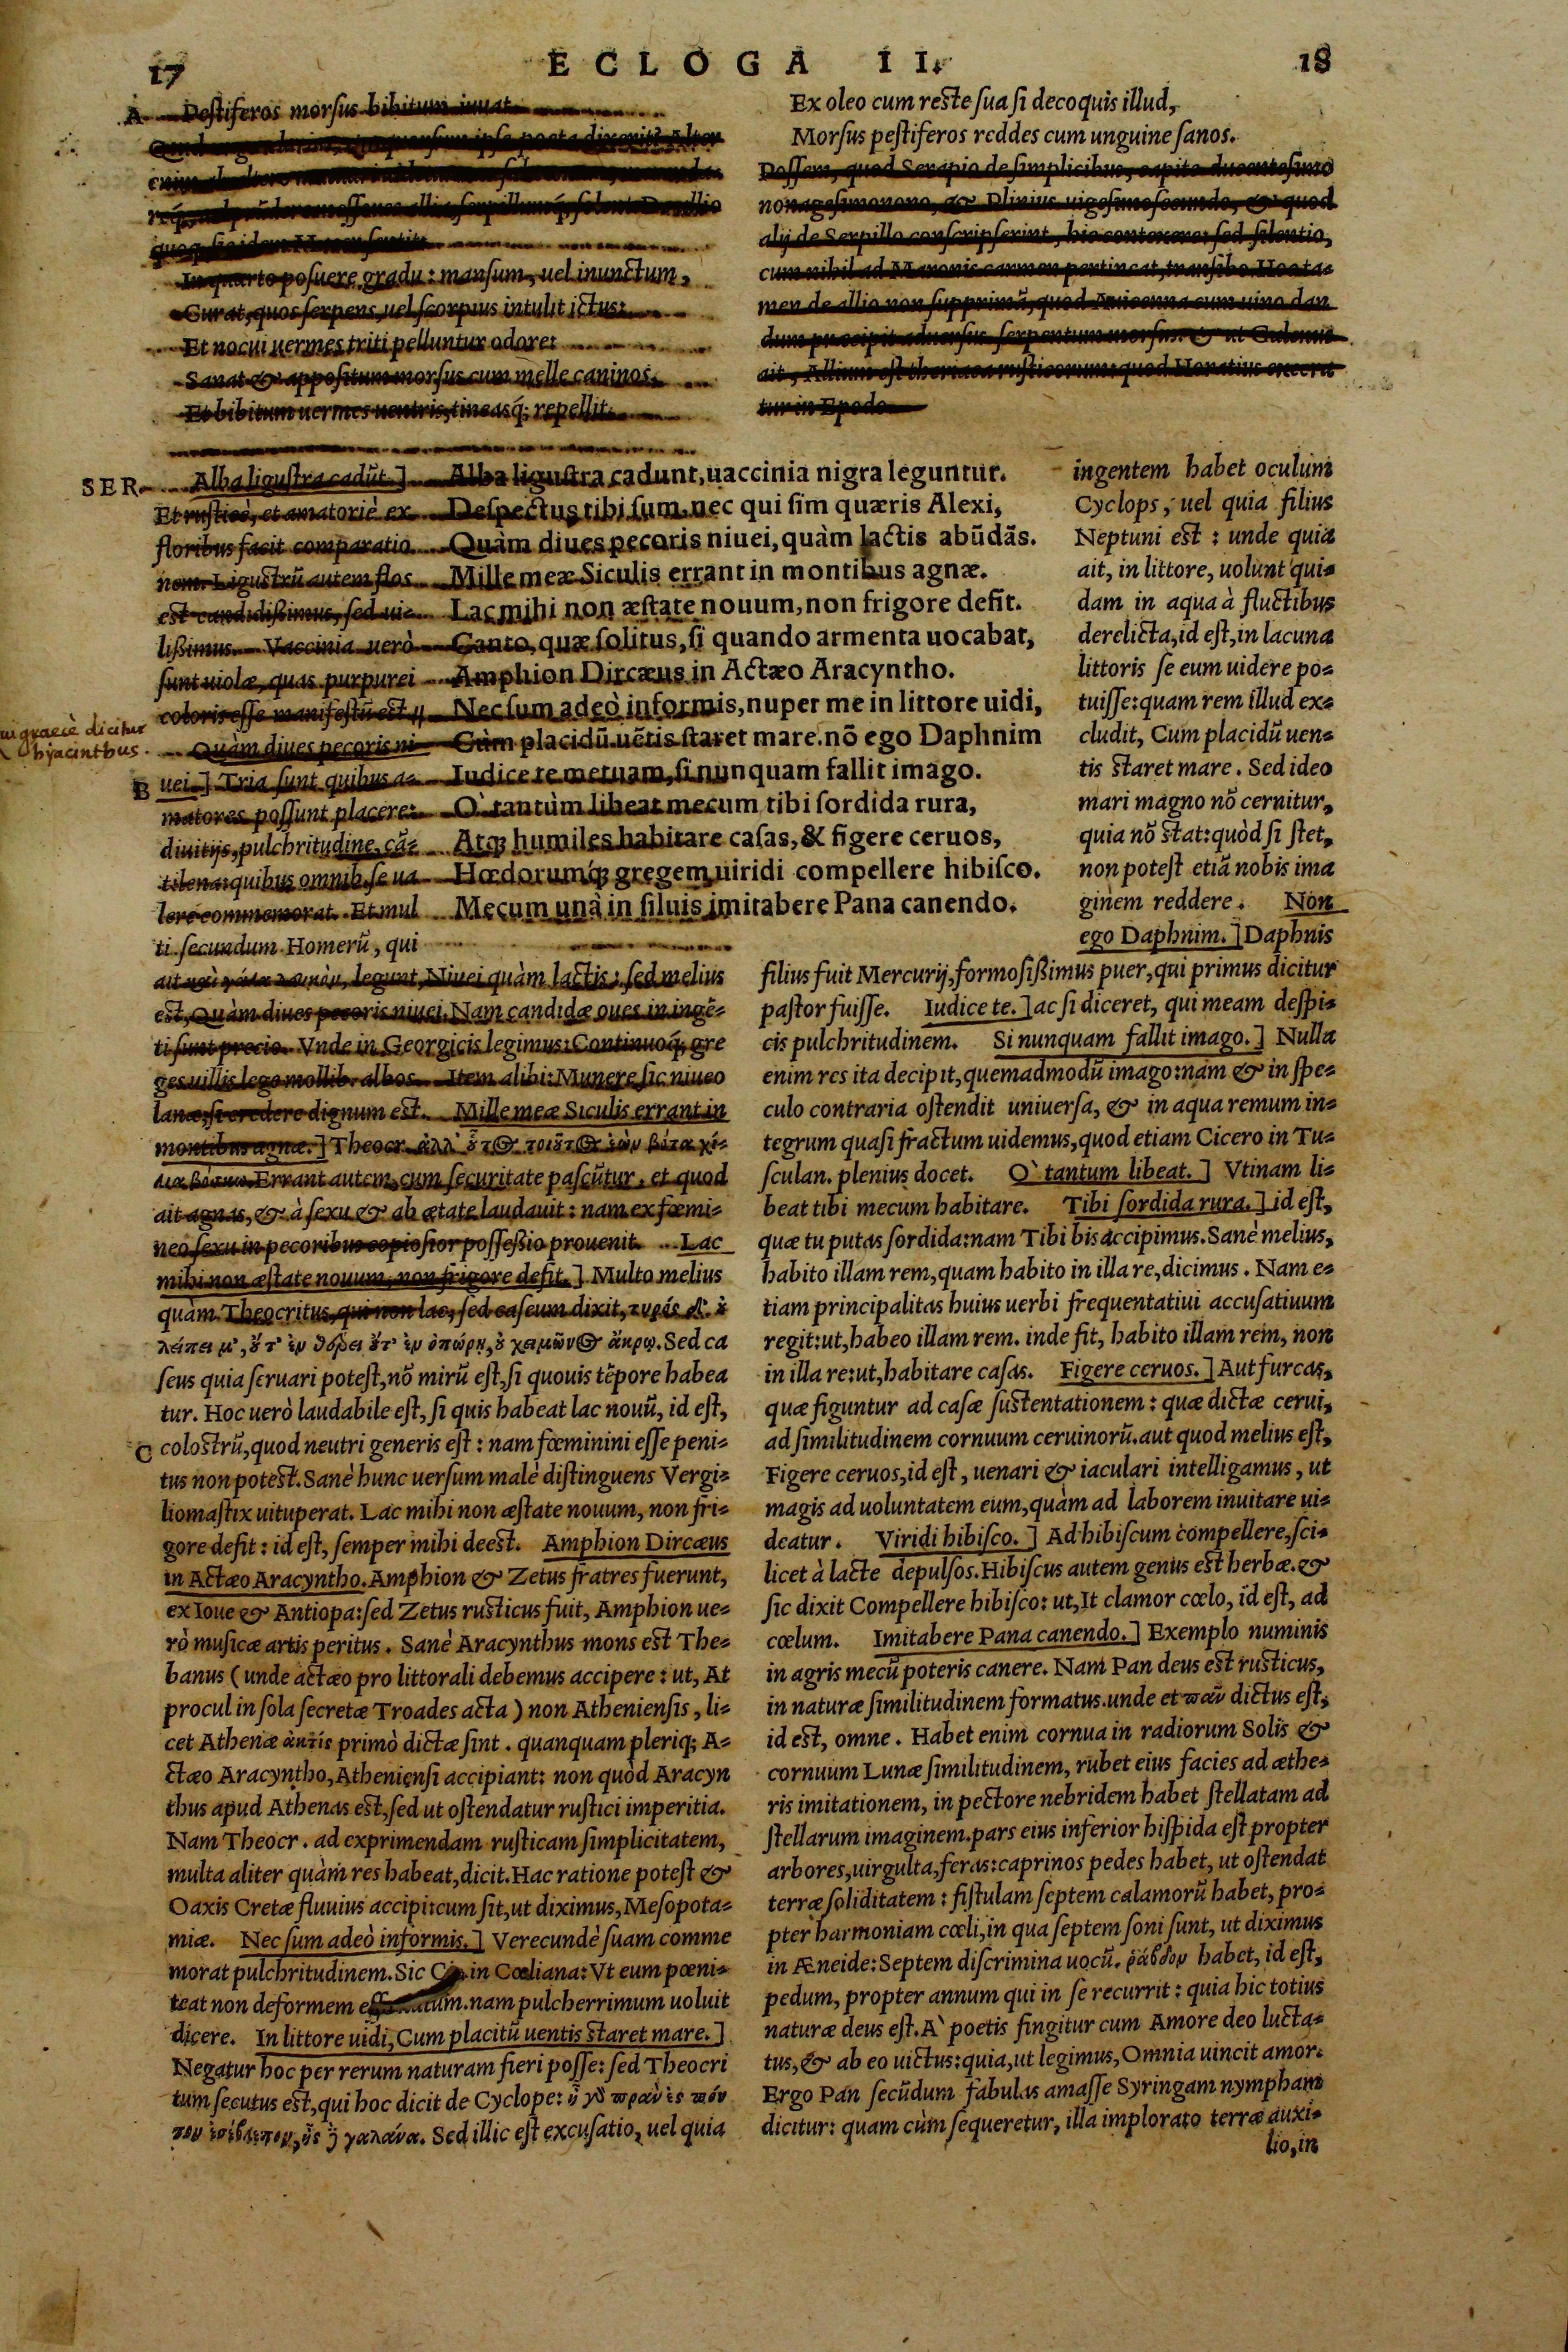 17 ECLOGA II. 18
A Pestiferos morsus bibitum iuuat
In quarto posuere gradu: mansum, uel inunctum,
Curat, quos serpens, uel scorpius intulit ictus:
Et nocui uermes triti pelluntur odore:
Sanat & appositum morsus cum melle caninos,
Et bibitum uermes uentris, tineasq́; repellit.
Ex oleo cum reste sua si decoquis illud,
Morsus pestiferos reddes cum unguine sanos.
Possem, quod Serapio de simplicibus, capite ducentesimo
nonagesimonono, & Plinius uigesimosecundo, & quod
alij de Serpillo conscripserint, hic contexere: sed silentio,
cum nihil ad Maronis carmen pertineat, transibo. Hoc ta=
men de allio non supprimã, quod Auicenna cum uino dan
dum præcipit aduersus serpentum morsus. & ut Galenus
ait, Allium est theriaca rusticorum: quod Horatius execra
tur in Epodo
SER. Alba ligustra cadũt.]
Et rusticè, et amatoriè ex
floribus facit comparatio
nem. Ligustrũ autem flos
est candidißimus, sed ui=
lißimus. Vaccinia uerò
sunt uiolæ, quas purpurei
coloris esse manifestũ est
graecè dicitur
hyacinthus.
Quàm diues pecoris ni
B uei.] Tria sunt quibus a=
matores possunt placere:
diuitijs, pulchritudine, cã=
tilena: quibus omnib. se ua
lere commemorat. Et mul
ti secundum Homerũ, qui
Alba ligustra cadunt, uaccinia nigra leguntur.
Despectus tibi sum, nec qui sim quæris Alexi,
Quàm diues pecoris niuei, quàm lactis abũdãs.
Mille meæ Siculis errant in montibus agnæ.
Lac mihi non æstate nouum, non frigore defit.
Canto, quæ solitus, si quando armenta uocabat,
Amphion Dircæus in Actæo Aracyntho.
Nec sum adeò informis, nuper me in littore uidi,
Cùm placidũ uẽtis staret mare. nõ ego Daphnim
Iudice te metuam, si nunquam fallit imago.
O` tantùm libeat mecum tibi sordida rura,
Atq; humiles habitare casas, & figere ceruos,
Hœdorumq́; gregem uiridi compellere hibisco.
Mecum unà in siluis imitabere Pana canendo.
ingentem habet oculum
Cyclops, uel quia filius
Neptuni est: unde quia
ait, in littore, uolunt qui=
dam in aqua à fluctibus
derelicta, id est, in lacuna
littoris se eum uidere po=
tuisse: quam rem illud ex=
cludit, Cum placidũ uen=
tis staret mare. Sed ideo
mari magno nõ cernitur,
quia nõ stat: quòd si stet,
non potest etiã nobis ima
ginem reddere. Non
ego Daphnim.] Daphnis
legunt, Niuei quàm lactis: sed melius
est, Quàm diues pecoris niuei. Nam candidæ oues in ingẽ=
ti sunt precio. Vnde in Georgicis legimus: Continuoq́; gre
ges uillis lege mollib. albos. Item alibi: Munere sic niueo
lanæ, si credere dignum est. Mille meæ Siculis errant in
montibus agnæ.] Theocr.
Errant autem, cum securitate pascũtur. et quod
ait agnas, & à sexu & ab ætate laudauit: nam ex fœmi=
neo sexu in pecoribus copiosior possessio prouenit. Lac
mihi non æstate nouum, non frigore defit.] Multo melius
quàm Theocritus, qui non lac, sed caseum dixit, τυρὸς δ' ὀ
λείπει μ', ὄτ' ἐν θέρει ὄτ' ἐν ὀπώρῃ, ὀ χειμῶνος ἄκρω. Sed ca
seus quia seruari potest, nõ mirũ est, si quouis tẽpore habea
tur. Hoc uerò laudabile est, si quis habeat lac nouũ, id est,
C colostrũ, quod neutri generis est: nam fœminini esse peni=
tus non potest. Sanè hunc uersum malè distinguens Vergi=
liomastix uituperat. Lac mihi non æstate nouum, non fri=
gore defit: id est, semper mihi deest. Amphion Dircæus
in Actæo Aracyntho. Amphion & Zetus fratres fuerunt,
ex Ioue & Antiopa: sed Zetus rusticus fuit, Amphion ue=
rò musicæ artis peritus. Sanè Aracynthus mons est The=
banus (unde actæo pro littorali debemus accipere: ut, At
procul in sola secretæ Troades acta) non Atheniensis, li=
cet Athenæ ἀκτὶς primò dictæ sint. quanquam pleriq; A=
ctæo Aracyntho, Atheniensi accipiant: non quòd Aracyn
thus apud Athenas est, sed ut ostendatur rustici imperitia.
Nam Theocr. ad exprimendam rusticam simplicitatem,
multa aliter quàm res habeat, dicit. Hac ratione potest &
Oaxis Cretæ fluuius accipi: cum sit, ut diximus, Mesopota=
miæ. Nec sum adeò informis.] Verecundè suam comme
morat pulchritudinem. Sic in Cœliana: Vt eum pœni=
teat non deformem natum. nam pulcherrimum uoluit
dicere. In littore uidi, Cum placitũ uentis staret mare.]
Negatur hoc per rerum naturam fieri posse: sed Theocri
tum secutus est, qui hoc dicit de Cyclope:
Sed illic est excusatio, uel quia
filius fuit Mercurij, formosißimus puer, qui primus dicitur
pastor fuisse. Iudice te.] ac si diceret, qui meam despi=
cis pulchritudinem. Si nunquam fallit imago.] Nulla
enim res ita decipit, quemadmodũ imago: nam & in spe=
culo contraria ostendit uniuersa, & in aqua remum in=
tegrum quasi fractum uidemus, quod etiam Cicero in Tu=
sculan. plenius docet. O` tantum libeat.] Vtinam li=
beat tibi mecum habitare. Tibi sordida rura.] id est,
quæ tu putas sordida: nam Tibi bis accipimus. Sanè melius,
habito illam rem, quam habito in illa re, dicimus. Nam e=
tiam principalitas huius uerbi frequentatiui accusatiuum
regit: ut, habeo illam rem. inde fit, habito illam rem, non
in illa re: ut, habitare casas. Figere ceruos.] Aut furcas,
quæ figuntur ad casæ sustentationem: quæ dictæ cerui,
ad similitudinem cornuum ceruinorũ. aut quod melius est,
Figere ceruos, id est, uenari & iaculari intelligamus, ut
magis ad uoluntatem eum, quàm ad laborem inuitare ui=
deatur. Viridi hibisco.] Ad hibiscum compellere, sci=
licet à lacte depulsos. Hibiscus autem genus est herbæ. &
sic dixit Compellere hibisco: ut, It clamor cœlo, id est, ad
cœlum. Imitabere Pana canendo.] Exemplo numinis
in agris mecũ poteris canere. Nam Pan deus est rusticus,
in naturæ similitudinem formatus. unde et πᾶν dictus est,
id est, omne. Habet enim cornua in radiorum Solis &
cornuum Lunæ similitudinem, rubet eius facies ad æthe=
ris imitationem, in pectore nebridem habet stellatam ad
stellarum imaginem. pars eius inferior hispida est propter
arbores, uirgulta, feras: caprinos pedes habet, ut ostendat
terræ soliditatem: fistulam septem calamorũ habet, pro=
pter harmoniam cœli, in qua septem soni sunt, ut diximus
in Æneide: Septem discrimina uocũ. ῥάβδον habet, id est,
pedum, propter annum qui in se recurrit: quia hic totius
naturæ deus est. A` poetis fingitur cum Amore deo lucta=
tus, & ab eo uictus: quia, ut legimus, Omnia uincit amor.
Ergo Pan secũdum fabulas amasse Syringam nympham
dicitur: quam cùm sequeretur, illa implorato terræ auxi=
lio, in